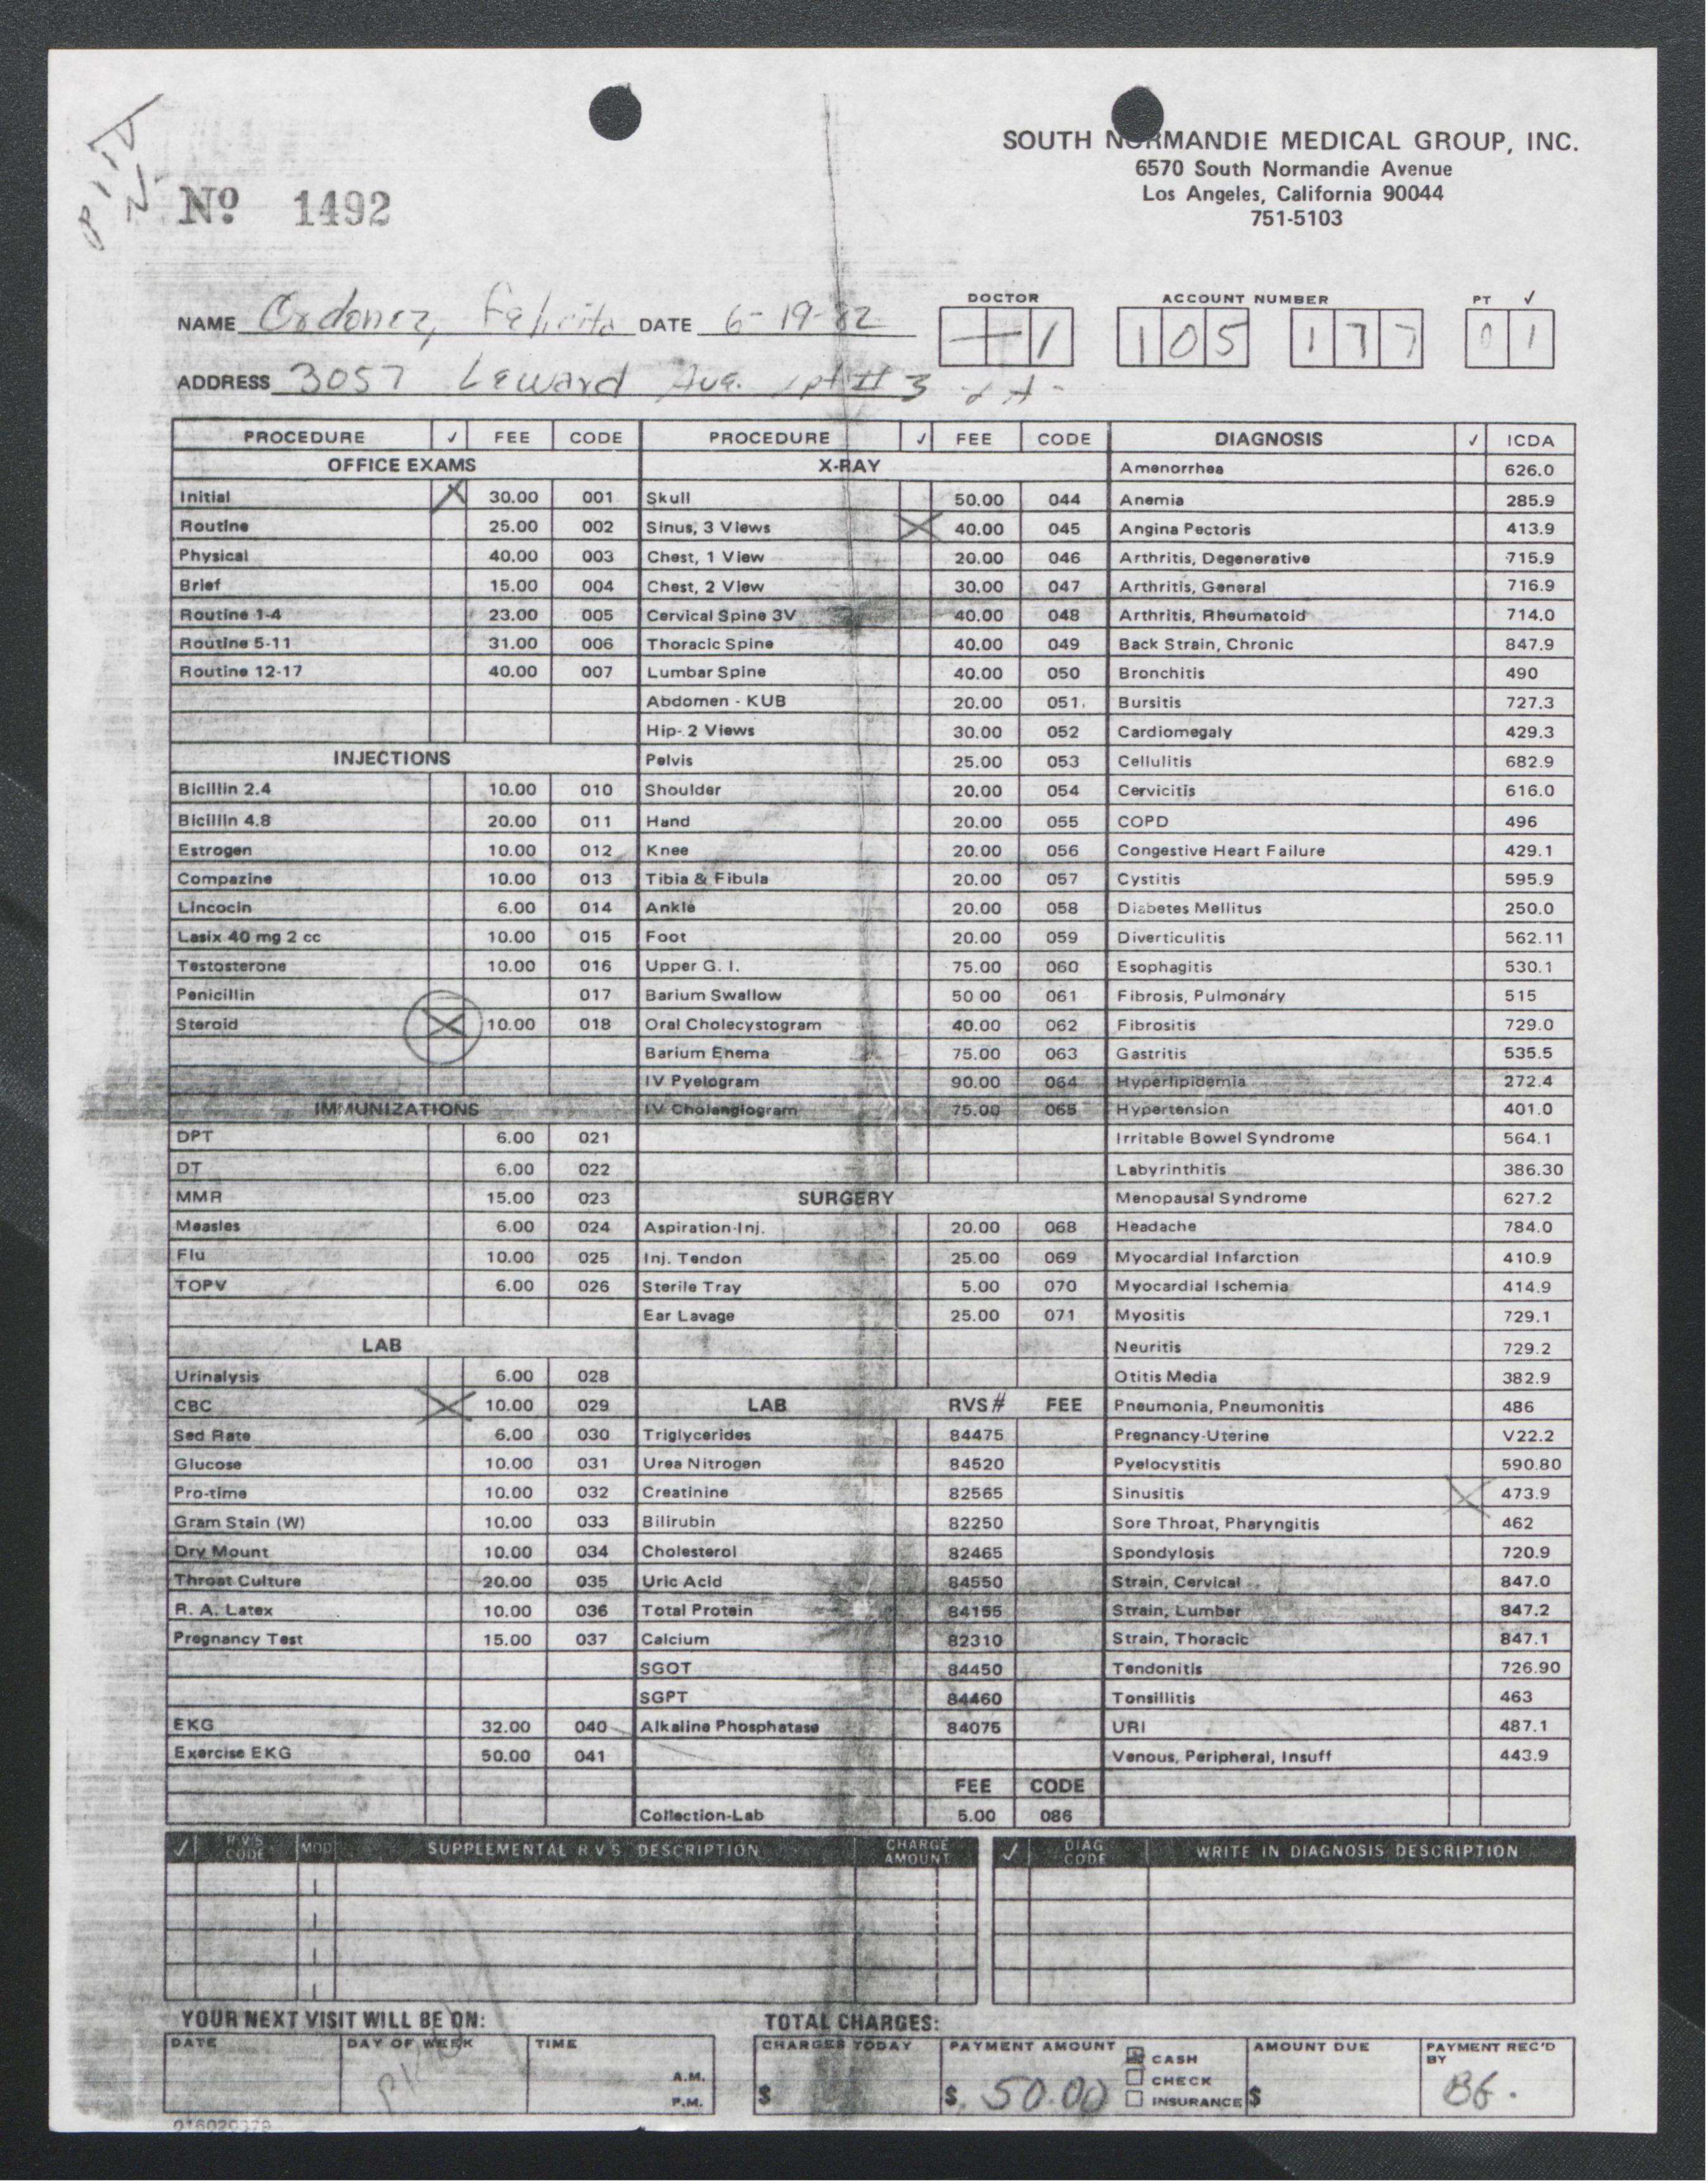 SOUTH NORMANDIE MEDICAL GROUP, INC.
6570 South Normandie Avenue
Los Angeles, California 90044
751-5103
Nº 1492
NAME Ordonez, Felicita DATE 6-19-82
DOCTOR 1
ACCOUNT NUMBER 105 177
PT ✓ 01
ADDRESS 3057 Leward Ave. Apt # 3
PROCEDURE ✓ FEE CODE PROCEDURE ✓ FEE CODE DIAGNOSIS ✓ ICDA
OFFICE EXAMS X-RAY Amenorrhea 626.0
Initial X 30.00 001 Skull 50.00 044 Anemia 285.9
Routine 25.00 002 Sinus, 3 Views X 40.00 045 Angina Pectoris 413.9
Physical 40.00 003 Chest, 1 View 20.00 046 Arthritis, Degenerative 715.9
Brief 15.00 004 Chest, 2 View 30.00 047 Arthritis, General 716.9
Routine 1-4 23.00 005 Cervical Spine 3V 40.00 048 Arthritis, Rheumatoid 714.0
Routine 5-11 31.00 006 Thoracic Spine 40.00 049 Back Strain, Chronic 847.9
Routine 12-17 40.00 007 Lumbar Spine 40.00 050 Bronchitis 490
Abdomen - KUB 20.00 051. Bursitis 727.3
Hip- 2 Views 30.00 052 Cardiomegaly 429.3
INJECTIONS Pelvis 25.00 053 Cellulitis 682.9
Bicillin 2.4 10.00 010 Shoulder 20.00 054 Cervicitis 616.0
Bicillin 4.8 20.00 011 Hand 20.00 055 COPD 496
Estrogen 10.00 012 Knee 20.00 056 Congestive Heart Failure 429.1
Compazine 10.00 013 Tibia & Fibula 20.00 057 Cystitis 595.9
Lincocin 6.00 014 Ankle 20.00 058 Diabetes Mellitus 250.0
Lasix 40 mg 2 cc 10.00 015 Foot 20.00 059 Diverticulitis 562.11
Testosterone 10.00 016 Upper G. I. 75.00 060 Esophagitis 530.1
Penicillin 017 Barium Swallow 50 00 061 Fibrosis, Pulmonary 515
Steroid X 10.00 018 Oral Cholecystogram 40.00 062 Fibrositis 729.0
Barium Enema 75.00 063 Gastritis 535.5
IV Pyelogram 90.00 064 Hyperlipidemia 272.4
IMMUNIZATIONS IV Cholangiogram 75.00 065 Hypertension 401.0
DPT 6.00 021 Irritable Bowel Syndrome 564.1
DT 6.00 022 Labyrinthitis 386.30
MMR 15.00 023 SURGERY Menopausal Syndrome 627.2
Measles 6.00 024 Aspiration-Inj. 20.00 068 Headache 784.0
Flu 10.00 025 Inj. Tendon 25.00 069 Myocardial Infarction 410.9
TOPV 6.00 026 Sterile Tray 5.00 070 Myocardial Ischemia 414.9
Ear Lavage 25.00 071 Myositis 729.1
LAB Neuritis 729.2
Urinalysis 6.00 028 Otitis Media 382.9
CBC X 10.00 029 LAB RVS# FEE Pneumonia, Pneumonitis 486
Sed Rate 6.00 030 Triglycerides 84475 Pregnancy-Uterine V22.2
Glucose 10.00 031 Urea Nitrogen 84520 Pyelocystitis 590.80
Pro-time 10.00 032 Creatinine 82565 Sinusitis X 473.9
Gram Stain (W) 10.00 033 Bilirubin 82250 Sore Throat, Pharyngitis 462
Dry Mount 10.00 034 Cholesterol 82465 Spondylosis 720.9
Throat Culture 20.00 035 Uric Acid 84550 Strain, Cervical 847.0
R. A. Latex 10.00 036 Total Protein 84155 Strain, Lumbar 847.2
Pregnancy Test 15.00 037 Calcium 82310 Strain, Thoracic 847.1
SGOT 84450 Tendonitis 726.90
SGPT 84460 Tonsillitis 463
EKG 32.00 040 Alkaline Phosphatase 84075 URI 487.1
Exercise EKG 50.00 041 Venous, Peripheral, Insuff 443.9
FEE CODE
Collection-Lab 5.00 086
✓ R.V.S CODE MOD SUPPLEMENTAL R V S DESCRIPTION CHARGE AMOUNT ✓ DIAG CODE WRITE IN DIAGNOSIS DESCRIPTION
YOUR NEXT VISIT WILL BE ON: TOTAL CHARGES:
DATE DAY OF WEEK TIME A.M. P.M.
CHARGES TODAY $ PAYMENT AMOUNT $ 50.00 CASH CHECK INSURANCE AMOUNT DUE $ PAYMENT REC'D BY BG.